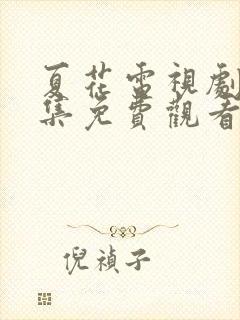 夏花雷視劇
集免費觀看
倪禎子